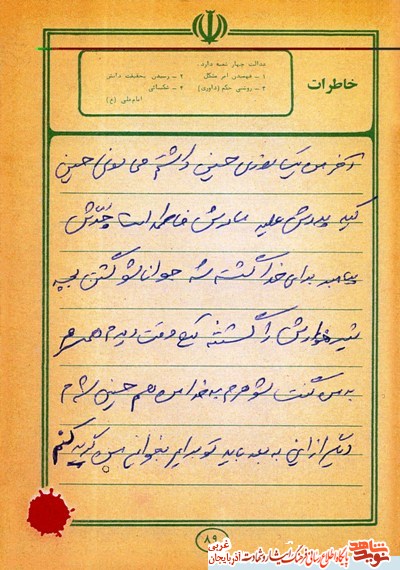 عدالت چهار شعبه دارد.
۱ – فهمیدن امر مشکل ۲ – رسیدن بحقیقت دانش
۳ – روشنی حکم (داوری) ۴ – شکیبائی
امام علی (ع)
خاطرات
آخر من یک روزی حسین داشتم می دونی حسین
کیه پدرش علیه مادرش فاطمه است جدش
پیامبر برای خدا کشته شد جواناشو کشتن بچه
شیرخوارش را کشتند یک وقت دیدم همسرم
به من گفت شوهرم به خدا من هم حسینی شدم
دیگر از این به بعد باید تو برایم بخوانی من گریه کنم
۸۹
نوید شاهد
پایگاه اطلاع رسانی فرهنگ ایثار و شهادت آذربایجان غربی